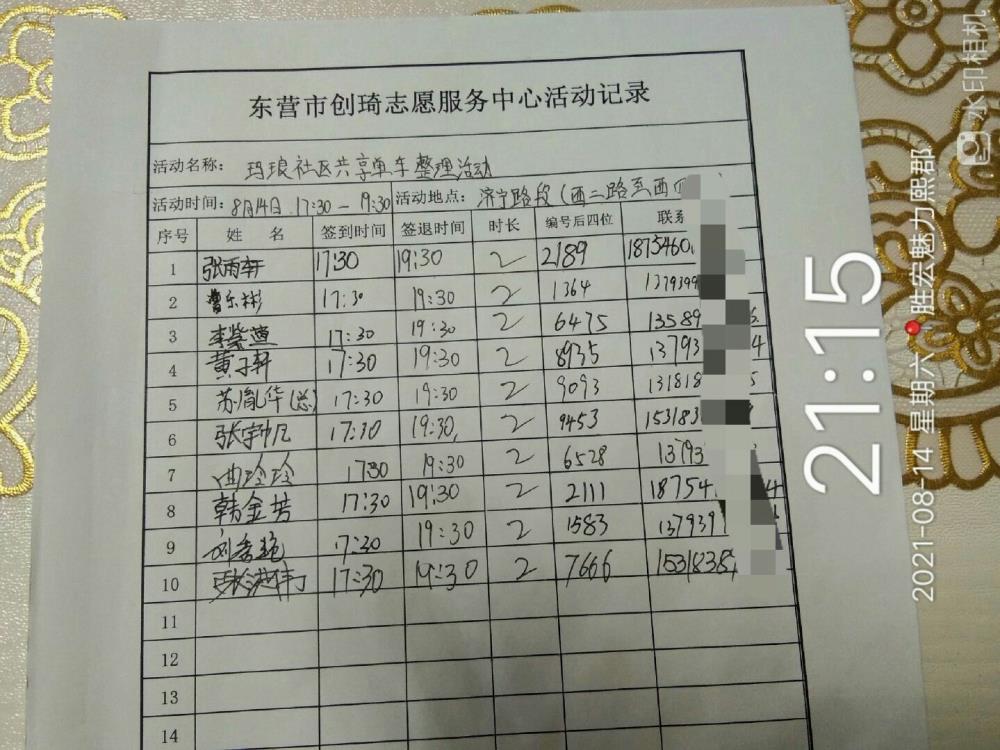 东营市创琦志愿服务中心活动记录
活动名称： 玛琅社区共享单车整理活动
活动时间： 8月14日 17:30-19:30 活动地点： 济宁路段(西二路至西四
序号 姓 名 签到时间 签退时间 时长 编号后四位 联系
1 张雨轩 17:30 19:30 2 2189 1875460
2 曹乐彬 17:30 19:30 2 1364 1379399
3 17:30 19:30 2 6475 13589
4 黄子轩 17:30 19:30 2 8935 13793 4
5 苏胤华(总) 17:30 19:30 2 9093 131818 5
6 17:30 19:30 2 9453 153183
7 曲玲玲 1730 19:30 2 6528 13793
8 韩金芳 17:30 19:30 2 2111 18754 4
9 17:30 19:30 2 1583 137939
10 17:30 19:30 2 7666 1531838
11
12
13
14
21:15
2021-08-14 星期六 胜宏魅力熙郡
水印相机